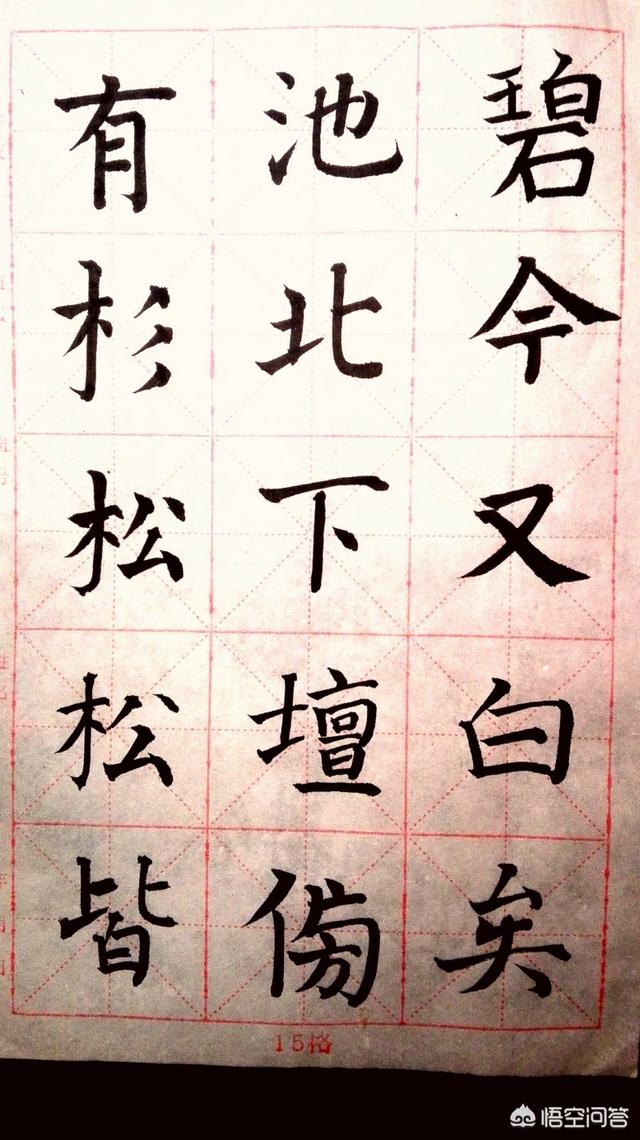 碧今又白矣
池北下壇傍
有杉松松皆
15格
悟空问答